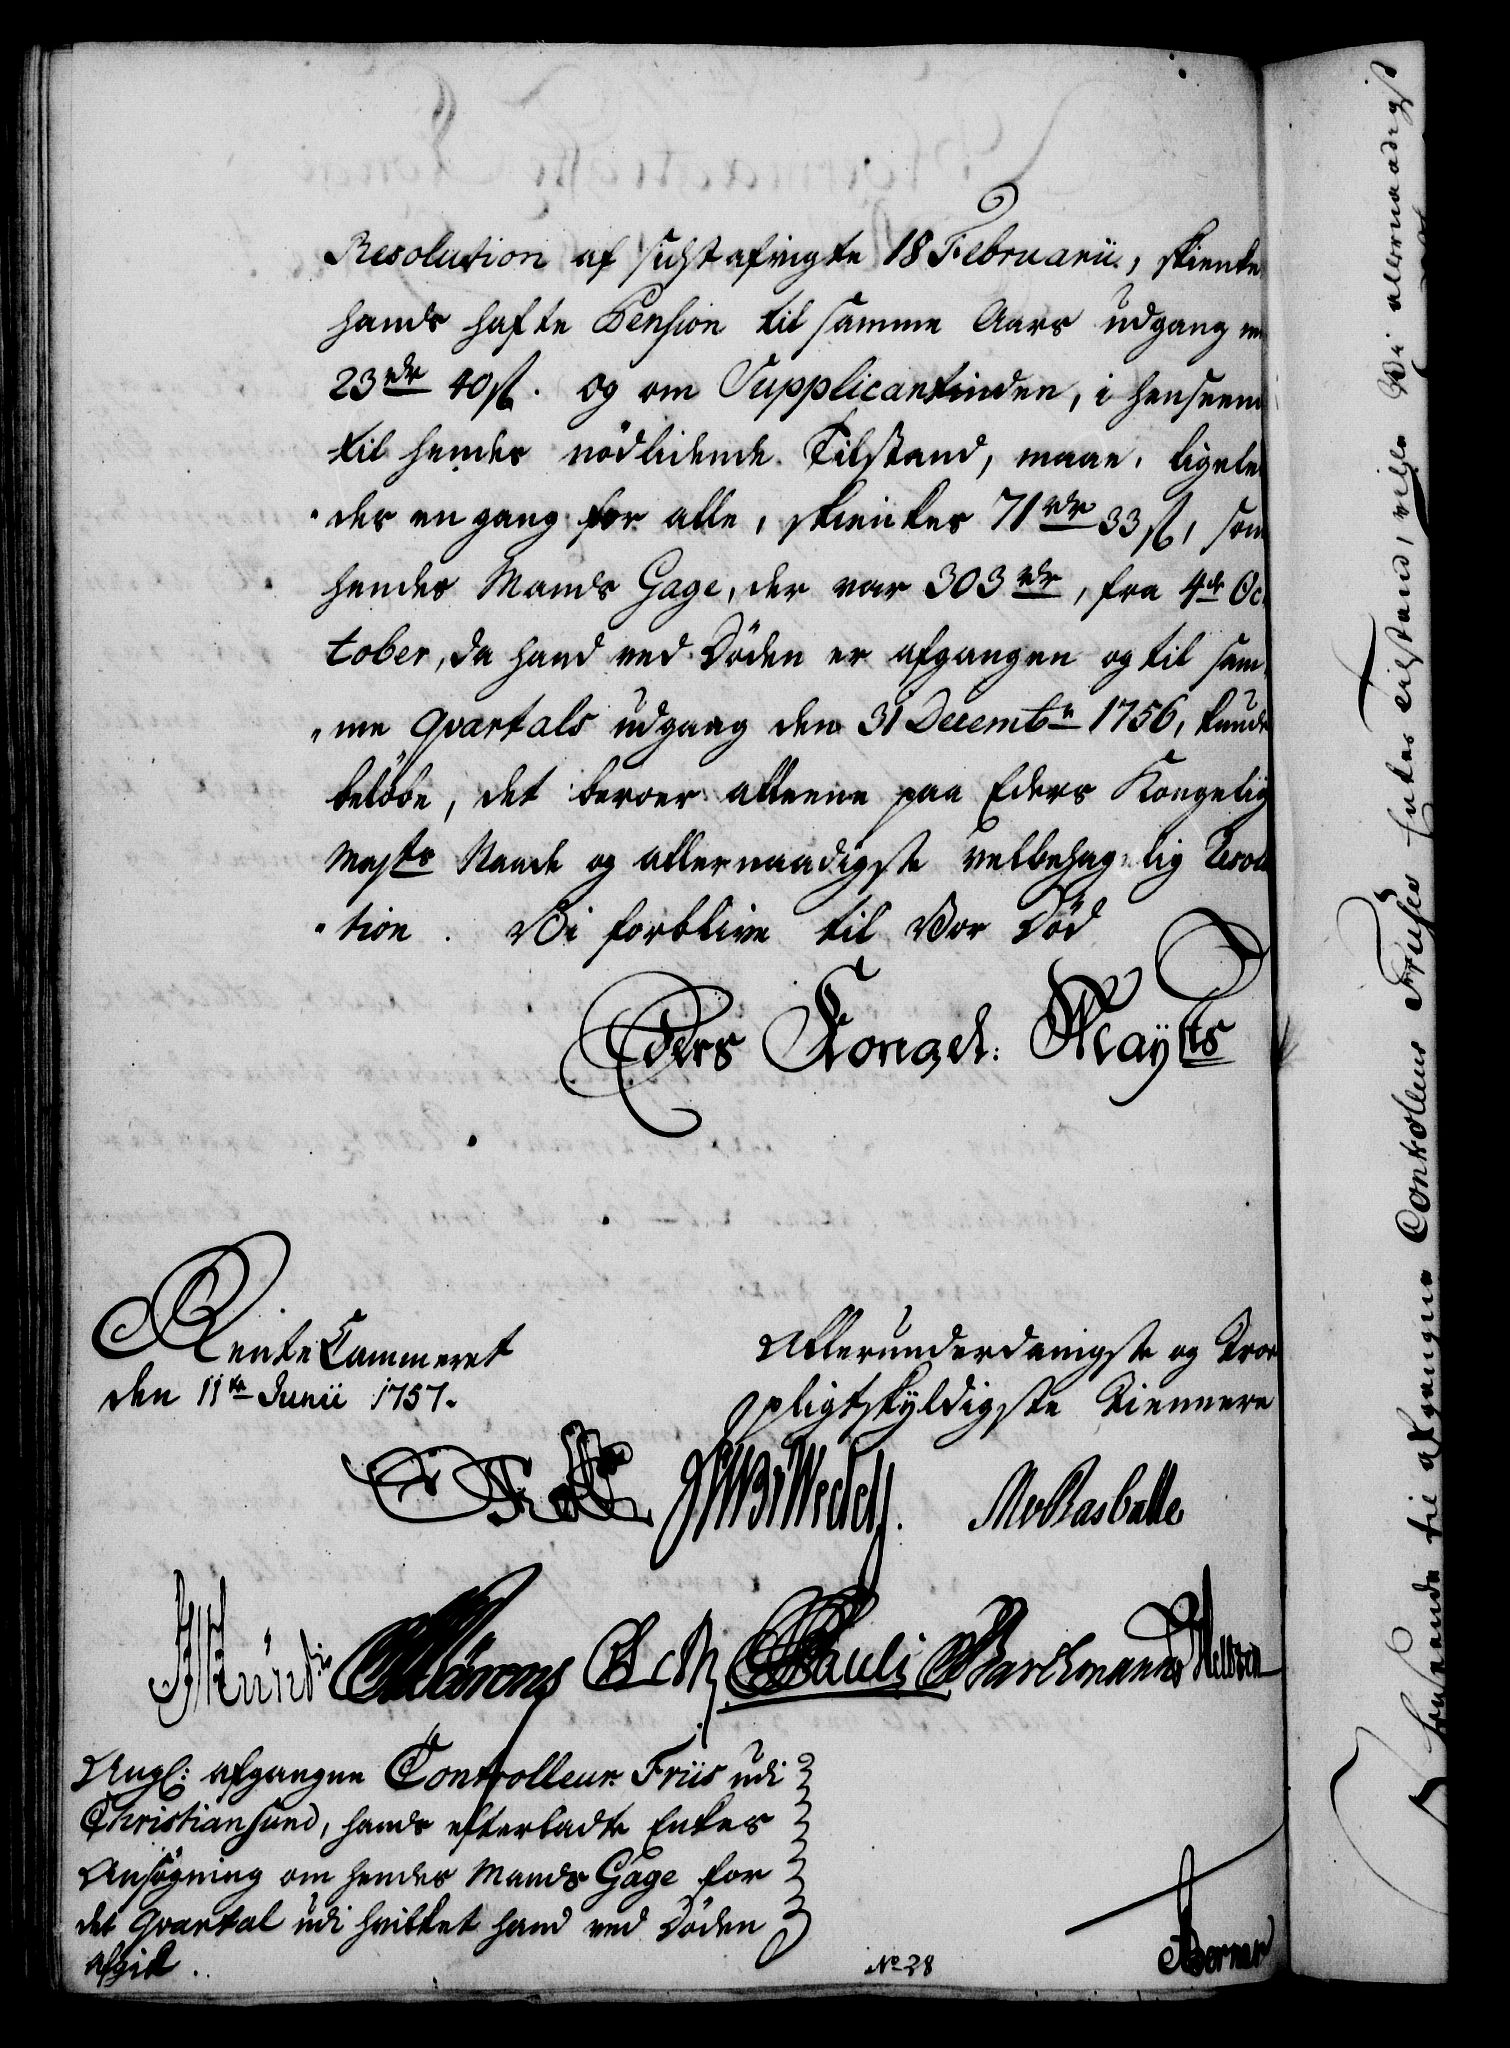 Resolution af sidstafvigte 18 Februarii, skienke
hands hafte Pension til samme Aars udgang m
23 rdr 40 s. og om Supplicantinden, i henseen
til hendes nødlidende Tilstand, maae, ligele
des en gang for alle, skienkes 71 rdr 33 s, som
hendes Mands Gage, der var 303 rdr, fra 4de Oc
tober, da hand ved Døden er afgangen og til sam
me qvartals udgang den 31 Decembr 1756, kunde
beløbe, det beroer alleene paa Eders Kongelig
Mayts Naade og allernaadigste velbehagelig Resolu
tion. Vi forblive til Vor Død
Eders Kongel: Mayts
Rente Cammeret
den 11te Junii 1757.
Allerunderdanigste og Troe
pligtskyldigste Tiennere
Wedell.
Rasballe
Pauli
Barchmann
Ang: afgangne Controlleur Friis udi
Christiansund, hands efterladte Enkes
Ansøgning om hendes Mands Gage for
det qvartal udi hvilket hand ved Døden
afgik.
No 28
Berner
Henseende til afgangne Controlleur Friises Enkes Tilstand, ville Vi allernaadigst